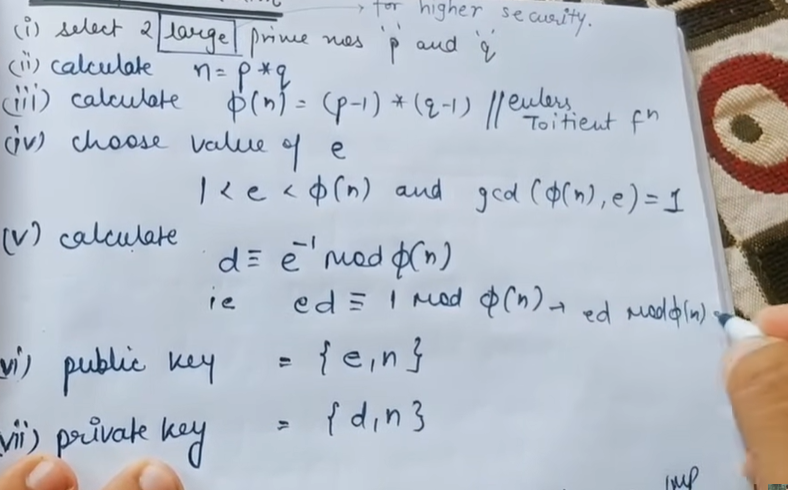 → for higher security.
(i) select 2 large prime nos 'p' and 'q'
(ii) calculate n = p * q
(iii) calculate ϕ(n) = (p-1) * (q-1) //eulers
Toitient fⁿ
(iv) choose value of e
1 < e < ϕ(n) and gcd (ϕ(n), e) = 1
(v) calculate
d ≡ e⁻¹ mod ϕ(n)
ie ed ≡ 1 mod ϕ(n) → ed mod ϕ(n)
vi) public key = {e, n}
vii) private key = {d, n}
imp